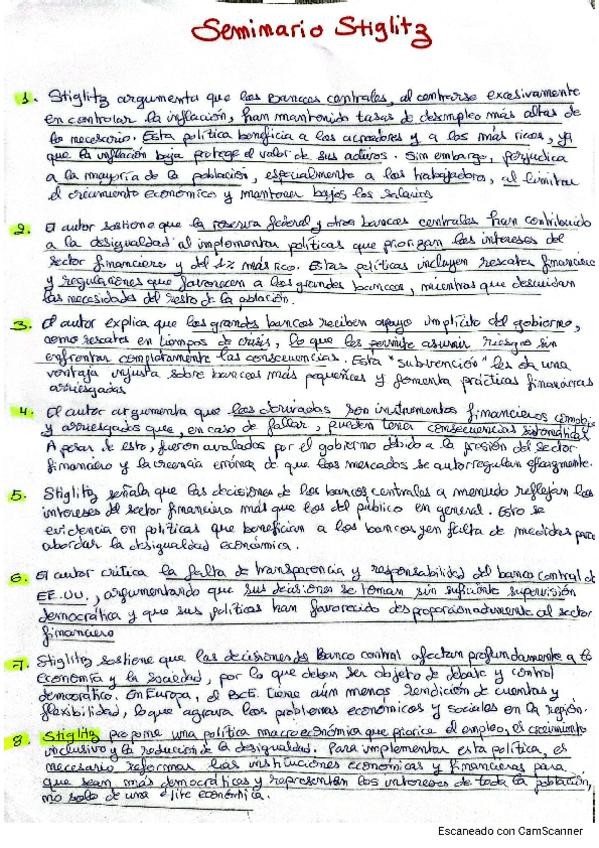 Seminario Stiglitz
1. Stiglitz argumenta que los bancos centrales, al centrarse excesivamente
en controlar la inflación, han mantenido tasas de desempleo más altas de
lo necesario. Esta política beneficia a los acreedores y a los más ricos, ya
que la inflación baja protege el valor de sus activos. Sin embargo, perjudica
a la mayoría de la población, especialmente a los trabajadores, al limitar
el crecimiento económico y mantener bajos los salarios
2. El autor sostiene que la reserva federal y otros bancos centrales han contribuido
a la desigualdad al implementar políticas que priorizan los intereses del
sector financiero y del 1% más rico. Estas políticas incluyen rescates financiero
y regulaciones que favorecen a los grandes bancos, mientras que descuidan
las necesidades del resto de la población.
3. El autor explica que los grandes bancos reciben apoyo implícito del gobierno,
como rescates en tiempos de crisis, lo que les permite asumir riesgos sin
enfrentar completamente las consecuencias. Esta "subvención" les da una
ventaja injusta sobre bancos más pequeños y fomenta prácticas financieras
arriesgadas
4. El autor argumenta que los derivados son instrumentos financieros
y arriesgados que, en caso de fallar, pueden tener consecuencias sistemáticas
A pesar de esto, fueron avalados por el gobierno debido a la presión del sector
financiero y la creencia errónea de que los mercados se autorregulan eficazmente.
5. Stiglitz señala que las decisiones de los bancos centrales a menudo reflejan los
intereses del sector financiero más que los del público en general. Esto se
evidencia en políticas que benefician a los bancos y en falta de medidas para
abordar la desigualdad económica.
6. El autor critica la falta de transparencia y responsabilidad del banco central de
EE.UU., argumentando que sus decisiones se toman sin suficiente supervisión
democrática y que sus políticas han favorecido desproporcionadamente al sector
financiero
7. Stiglitz sostiene que las decisiones de Banco central afectan profundamente a la
economía y la sociedad, por lo que deben ser objeto de debate y control
democrático. En Europa, el BCE tiene aún menos rendición de cuentas y
flexibilidad, lo que agrava los problemas económicos y sociales en la región.
8. Stiglitz propone una política macroeconómica que priorice el empleo, el crecimiento
inclusivo y la reducción de la desigualdad. Para implementar esta política, es
necesario reformar las instituciones económicas y financieras para
que sean más democráticas y representen los intereses de toda la población,
no solo de una élite económica.
Escaneado con CamScanner